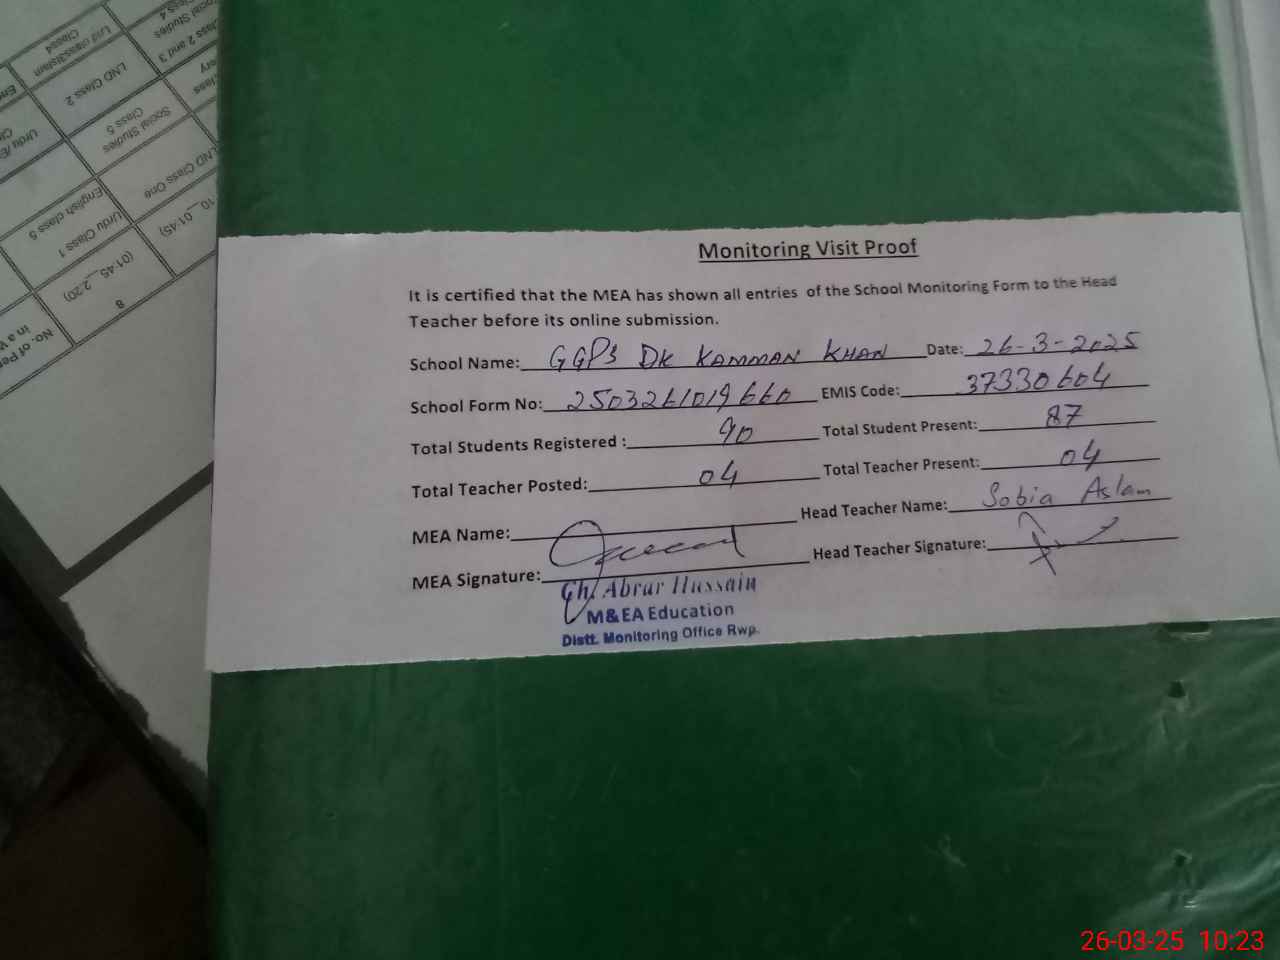 Monitoring Visit Proof
It is certified that the MEA has shown all entries of the School Monitoring Form to the Head
Teacher before its online submission.
School Name: GGPS DK KAMMAN KHAN Date: 26-3-2025
School Form No: 2503261019660 EMIS Code: 37330604
Total Students Registered : 90 Total Student Present: 87
Total Teacher Posted: 04 Total Teacher Present: 04
MEA Name: Head Teacher Name: Sobia Aslam
MEA Signature: Head Teacher Signature:
Ch. Abrar Hussain
M&EA Education
Distt. Monitoring Office Rwp.
No. of
in a
8
(01:45__2:20)
Urdu Class 1
English class 5
10__01:45)
LND Class One
Social Studies
Class 5
LND Class 2
Class 2 and 3
Social Studies
Class 4
26-03-25 10:23